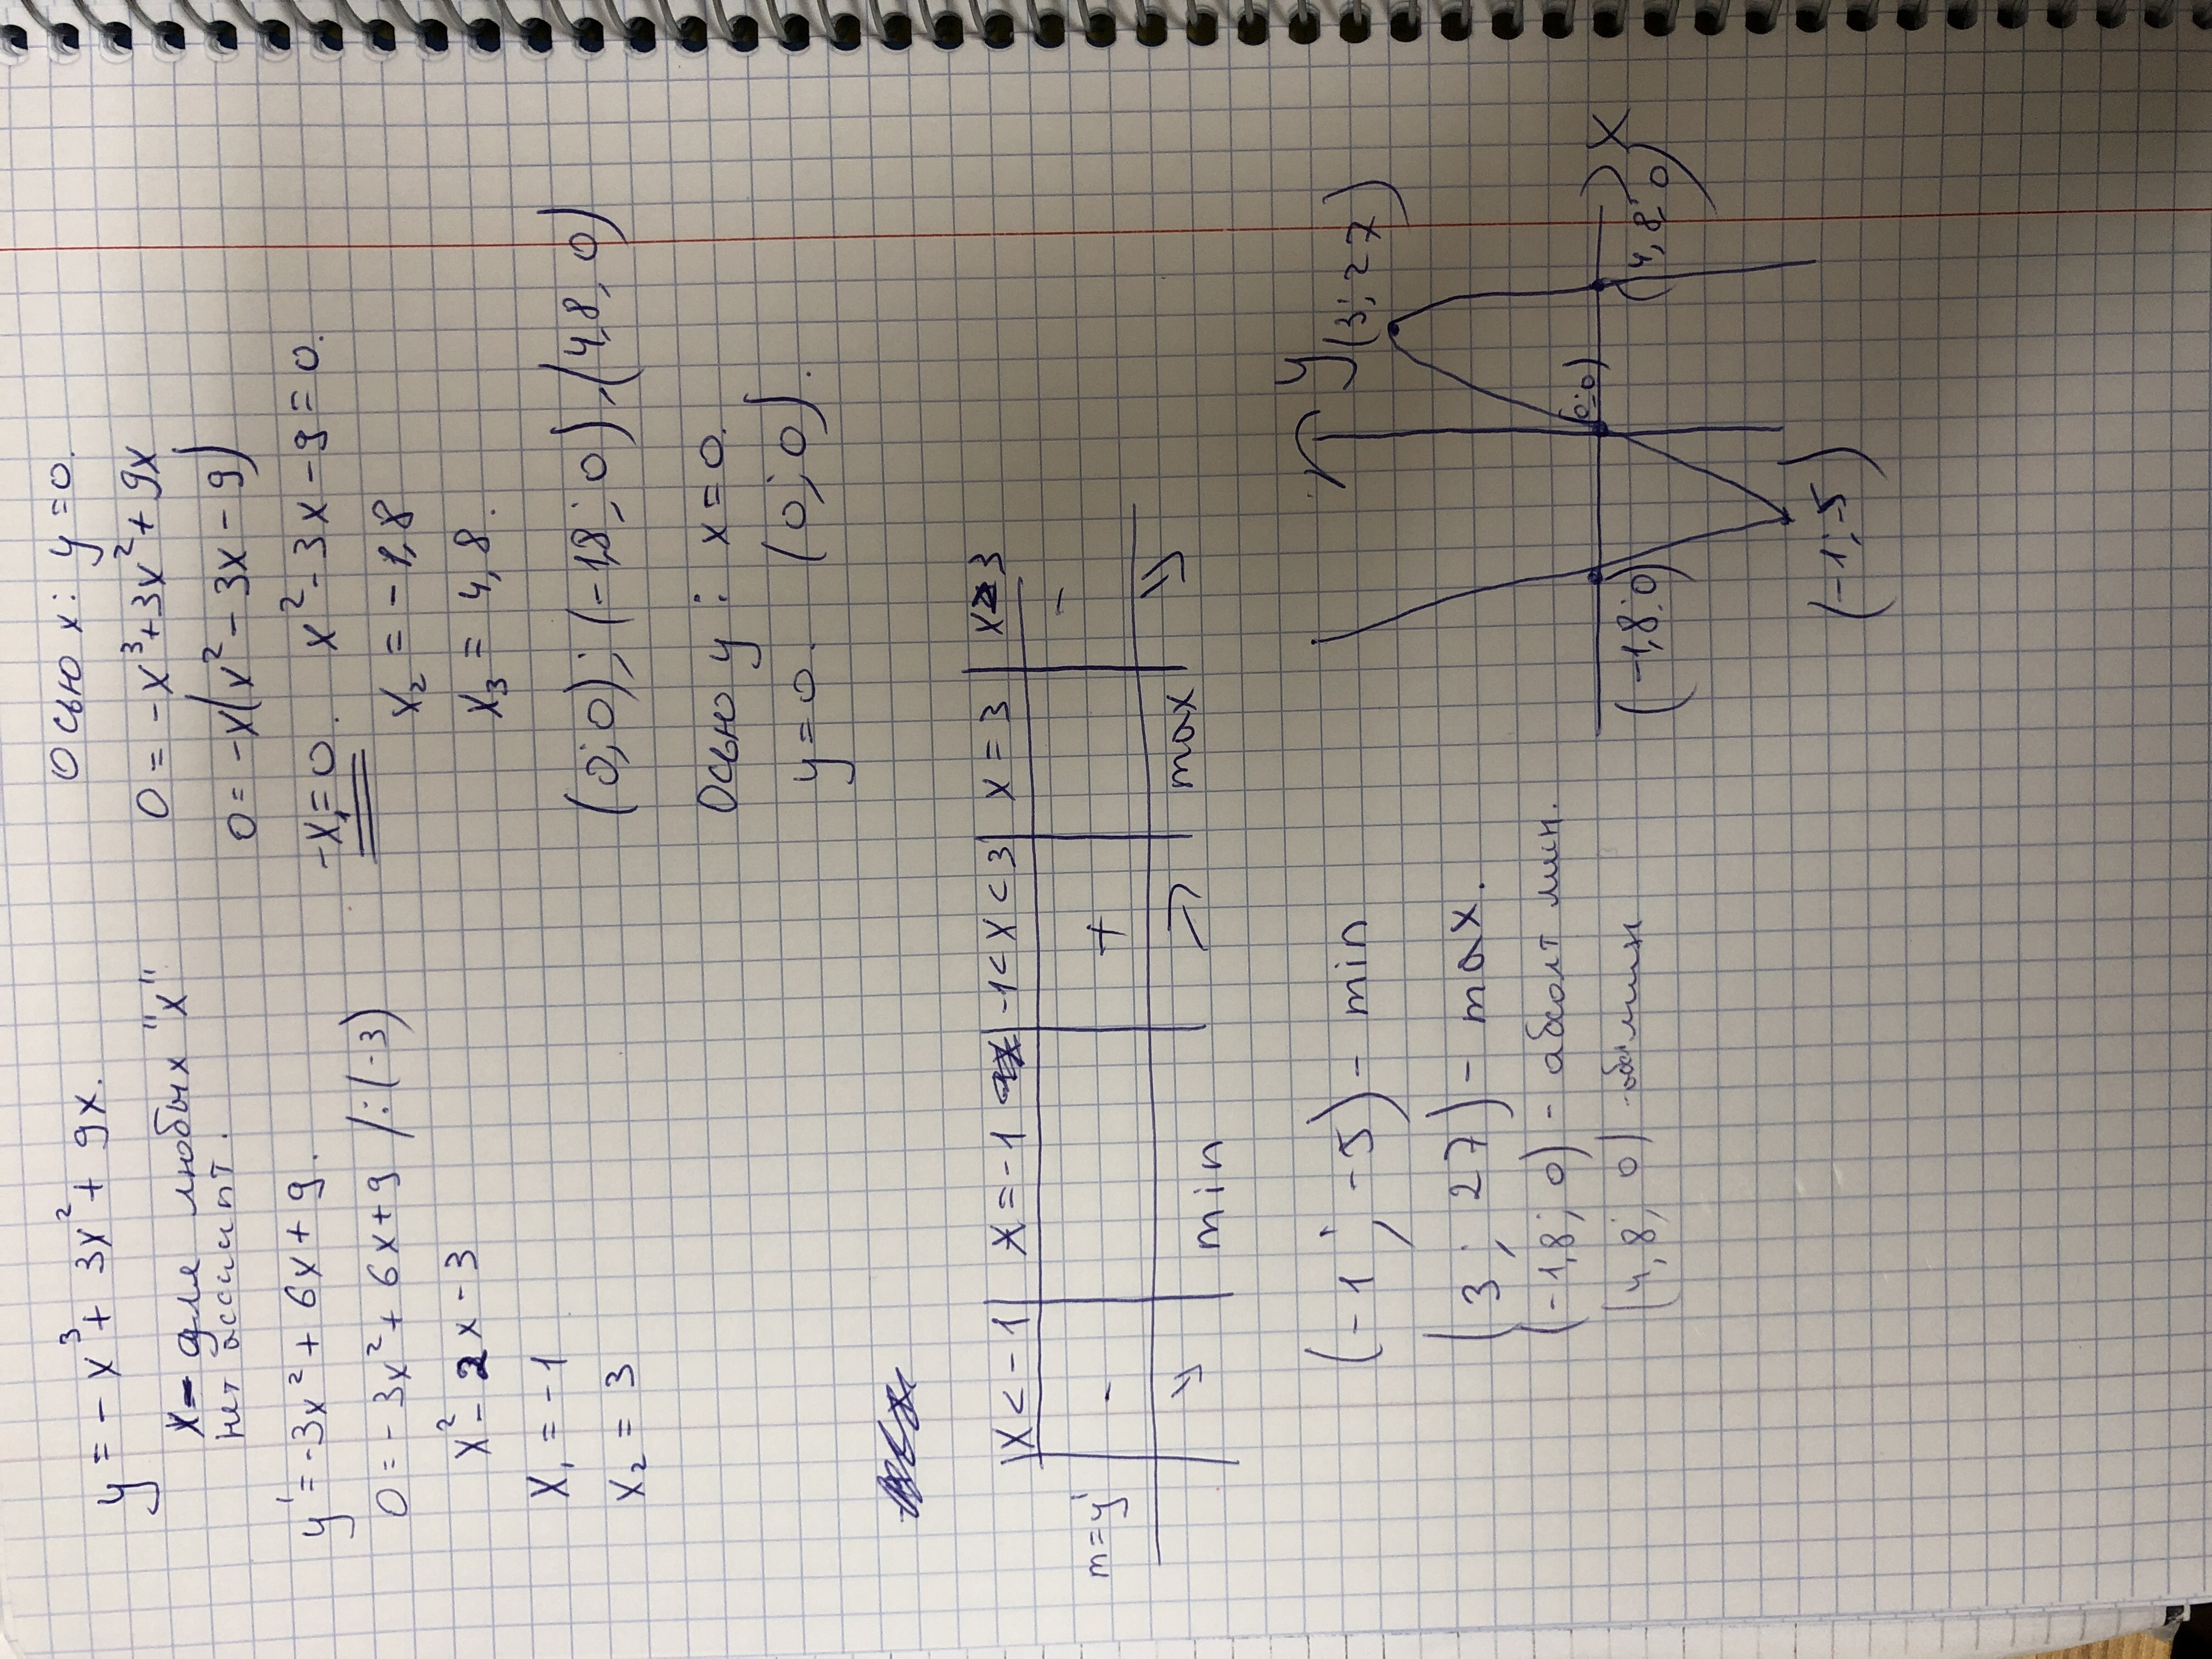 y = -x³ + 3x² + 9x.
x - для любых "x"
нет ассимпт.
y' = -3x² + 6x + 9.
0 = -3x² + 6x + 9 /:(-3)
x² - 2x - 3
x₁ = -1
x₂ = 3
Осью x: y = 0.
0 = -x³ + 3x² + 9x
0 = -x(x² - 3x - 9)
-x₁ = 0. x² - 3x - 9 = 0.
x₂ = -1,8
x₃ = 4,8.
(0; 0); (-1,8; 0), (4,8, 0)
Осью y: x = 0.
y = 0. (0; 0).
x < -1 | x = -1 | -1 < x < 3 | x = 3 | x > 3
m = y' - + -
↘ min ↗ max ↘
(-1; -5) - min
(3; 27) - max.
(-1,8; 0) - абсолт мин.
(4,8; 0)
y
(3; 27)
(0; 0)
x
(-1,8; 0)
(4,8; 0)
(-1; -5)